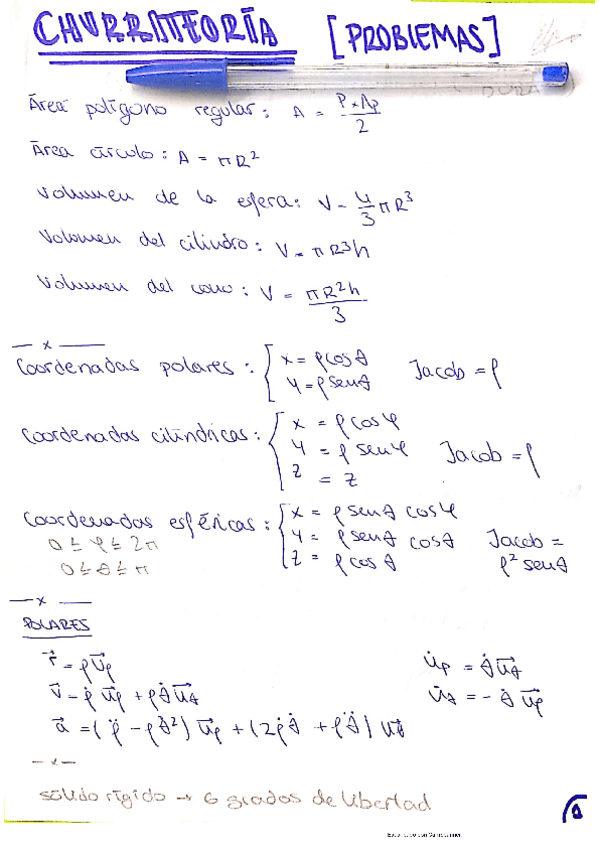 CHURRITEORÍA [PROBLEMAS]
DURA
Área polígono regular: A = P×Ap / 2
Área círculo: A = πR²
Volumen de la esfera: V = 4/3 πR³
Volumen del cilindro: V = πR³h
Volumen del cono: V = πR²h / 3
— x —
Coordenadas polares: { x = ρcosθ
y = ρsenθ Jacob = ρ
Coordenadas cilíndricas: { x = ρcosφ
y = ρsenφ Jacob = ρ
z = z
Coordenadas esféricas: { x = ρsenθ cosφ
0 ≤ φ ≤ 2π y = ρsenθ cosθ Jacob =
0 ≤ θ ≤ π z = ρcosθ ρ² senθ
— x —
POLARES
r⃗ = ρu⃗ρ u̇ρ = θ̇u⃗θ
v⃗ = ρ̇u⃗ρ + ρθ̇u⃗θ u̇θ = -θ̇u⃗ρ
a⃗ = (ρ̈ - ρθ̇²)u⃗ρ + (2ρ̇θ̇ + ρθ̈)u⃗θ
— x —
sólido rígido → 6 grados de libertad